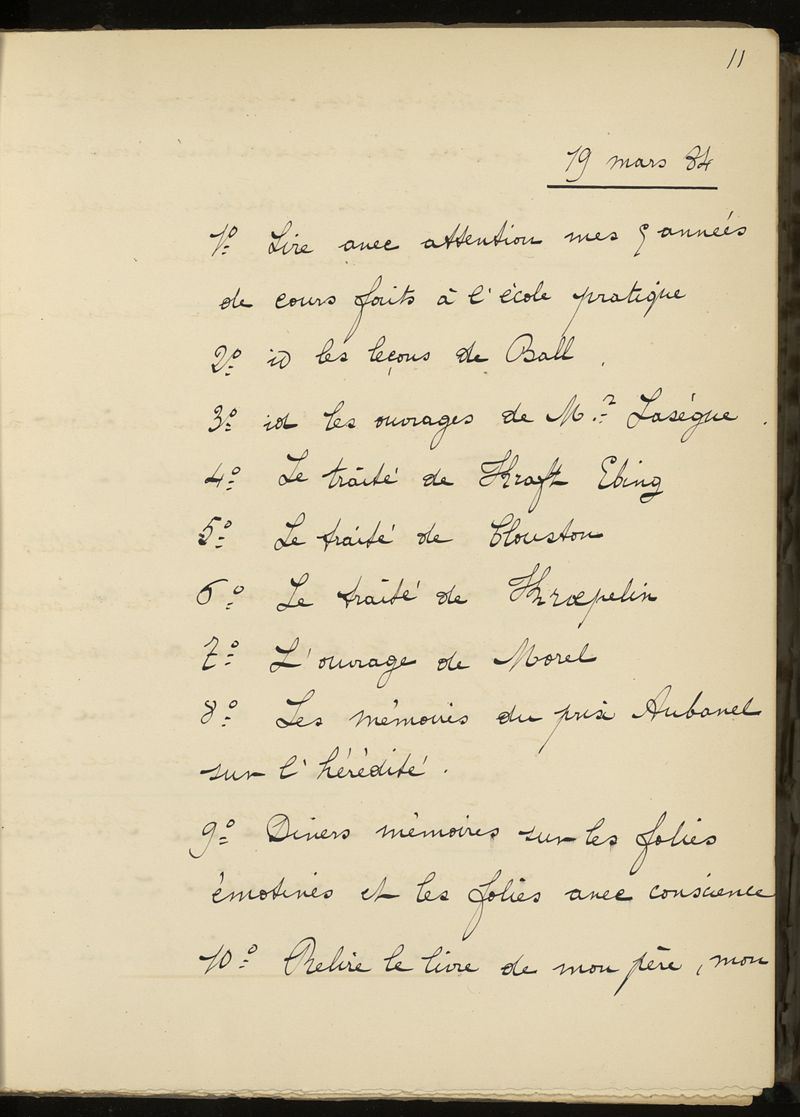 11
19 mars 84
1º Lire avec attention mes 5 années
de cours faits à l'école pratique
2º id les leçons de Ball.
3º id les ouvrages de M.r Lasègue.
4º Le traité de Kraft Ebing
5º Le traité de Clouston
6º Le traité de Kraepelin
7º L'ouvrage de Morel
8º Les mémoires du prix Aubanel
sur l'hérédité.
9º Divers mémoires sur les folies
émotives et les folies avec conscience
10º Relire le livre de mon père, mon